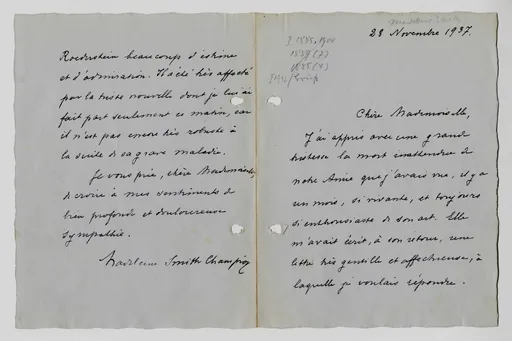 28 Novembre 1937.
Chère Mademoiselle,
J'ai appris avec une grande
tristesse la mort inattendue de
notre Amie que j'avais vue, il y a
un mois, si vivante, et toujours
si enthousiaste de son art. Elle
m'avait écrit, à son retour, une
lettre très gentille et affectueuse, à
laquelle je voulais répondre.
Roederstein beaucoup d'estime
et d'admiration. Il a été très affecté
par la triste nouvelle dont je lui ai
fait part seulement ce matin, car
il n'est pas encore très robuste à
la suite de sa grave maladie.
Je vous prie, chère Mademoiselle,
de croire à mes sentiments de
bien profonde et douloureuse
sympathie.
Madeleine Smith Champion